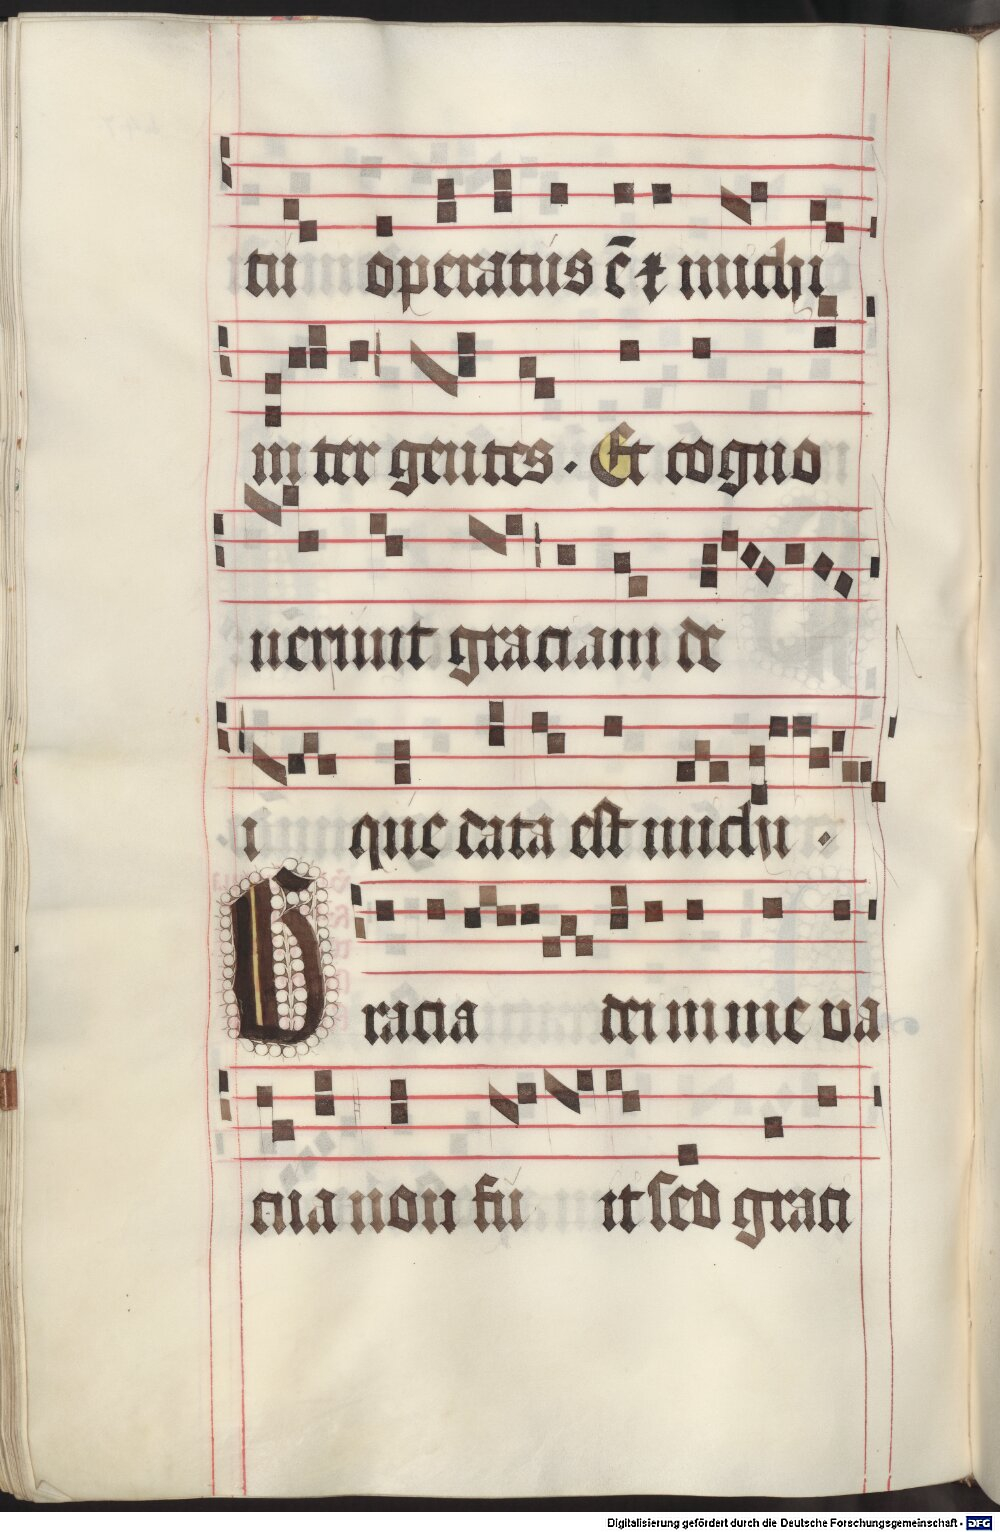 tu operatus ē ⁊ michi
in ter gentes . Et cogno
uerunt graciam de
i que data est michi .
Gracia dei in me va
cua non fu it sed graci
Digitalisierung gefördert durch die Deutsche Forschungsgemeinschaft - DFG